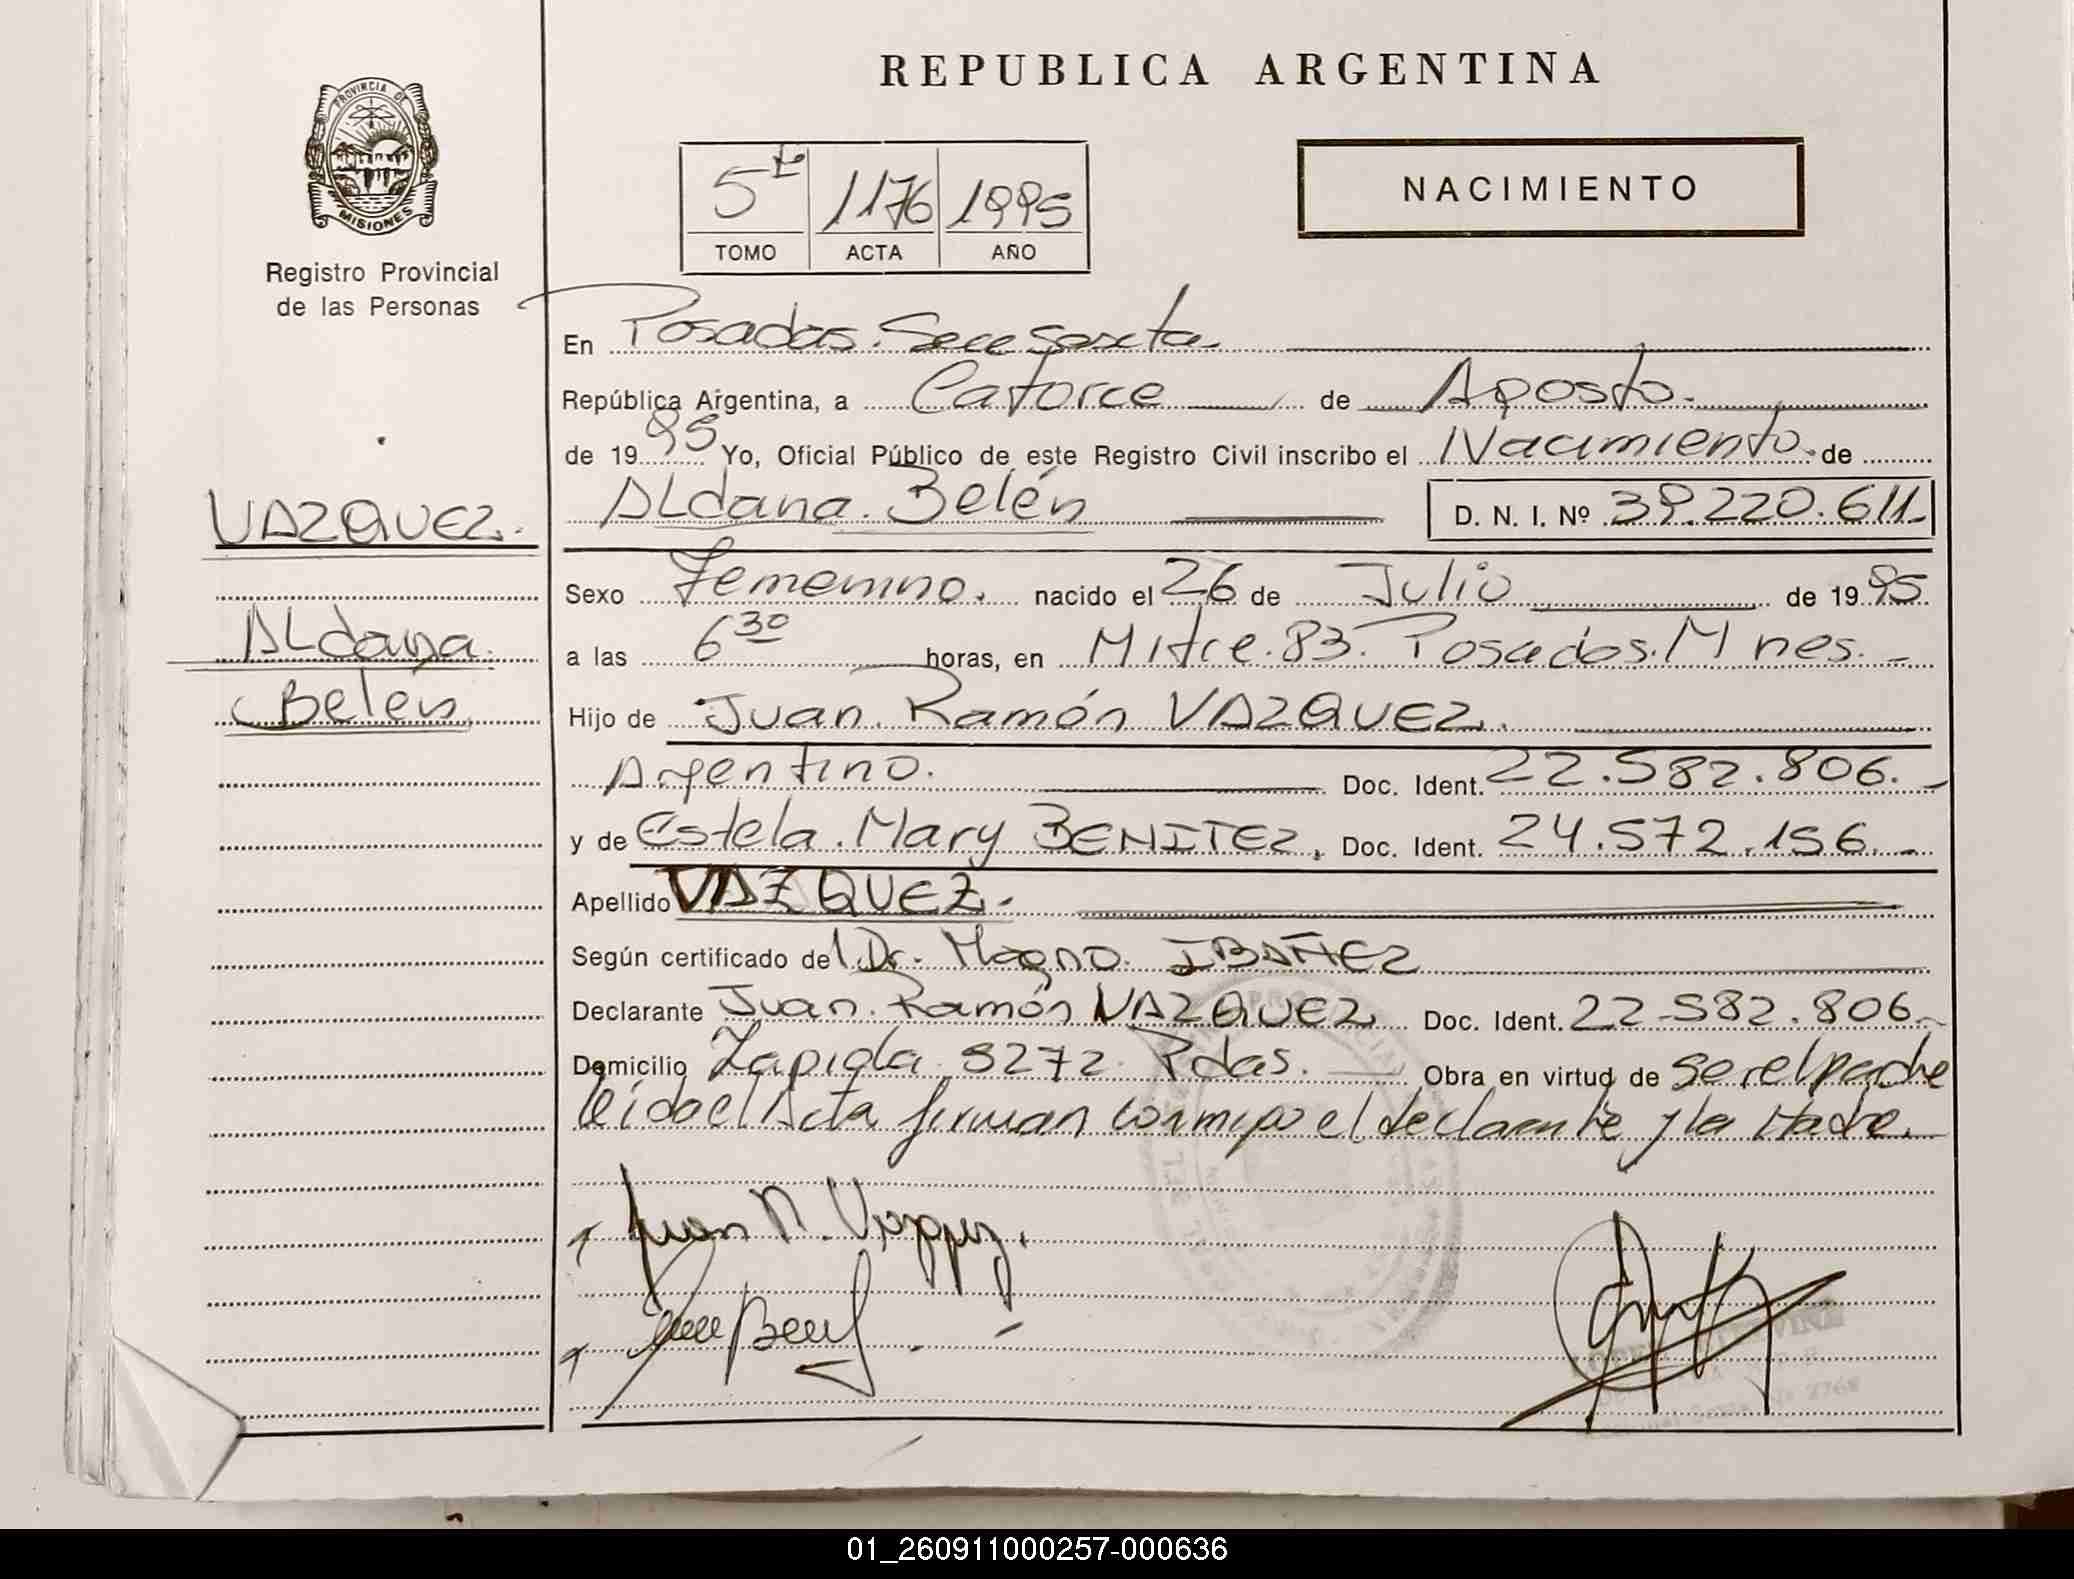 REPUBLICA ARGENTINA
PROVINCIA DE
MISIONES
Registro Provincial
de las Personas
5to 1176 1995
TOMO ACTA AÑO
NACIMIENTO
En Posadas. Secc Sexta
República Argentina, a Catorce de Agosto.
de 1995 Yo, Oficial Público de este Registro Civil inscribo el Nacimiento. de
Aldana. Belén D. N. I. Nº 39.220.611.
VAZQUEZ.
Aldana.
Belén
Sexo Femenino. nacido el 26 de Julio de 1995
a las 6 30 horas, en Mitre. 83. Posadas. Mnes.
Hijo de Juan. Ramón VAZQUEZ.
Argentino. Doc. Ident. 22.582.806.
y de Estela. Mary BENITEZ, Doc. Ident. 24.572.156.
Apellido VAZQUEZ.
Según certificado del Dr. Magno. IBAÑEZ
Declarante Juan. Ramón VAZQUEZ Doc. Ident. 22.582.806.
Domicilio Zapiola. 5272. Pdas. Obra en virtud de ser el padre
leido el Acta firman conmigo el declarante y la Madre.
Juan R. Vazquez.
01_260911000257-000636